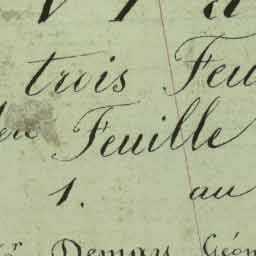 trois Feu
Feuille
1. au
Demay Géom